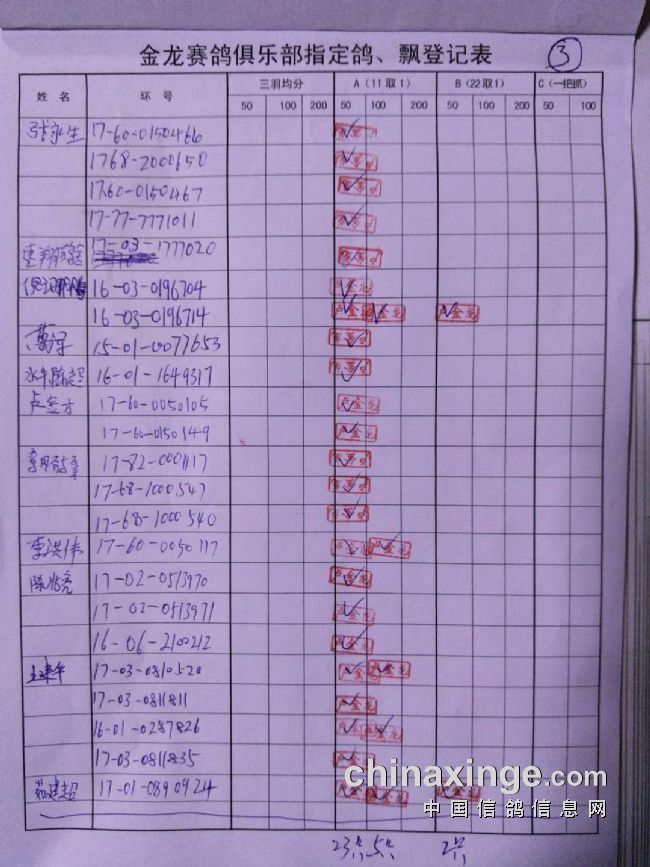 金龙赛鸽俱乐部指定鸽、飘登记表 ③
姓 名 环 号 三羽均分 A（11取1） B（22取1） C（一把抓）
50 100 200 50 100 200 50 100 200 50 100
张永生 17-60-0150466
1768-2000650
1760-0150467
17-77-7771011
17-03-1777020
16-03-0196704
16-03-0196714
15-01-0077653
16-01-1649317
卢金才 17-60-0050105
17-60-0150149
17-82-0001117
17-68-1000547
17-68-1000540
李洪伟 17-60-0050117
陈兆亮 17-02-0513970
17-02-0513971
16-06-2100212
17-03-0810520
17-03-0811811
16-01-0287826
17-03-0811835
17-01-0890924
23只 5只 2只
chinaxinge.com
中国信鸽信息网